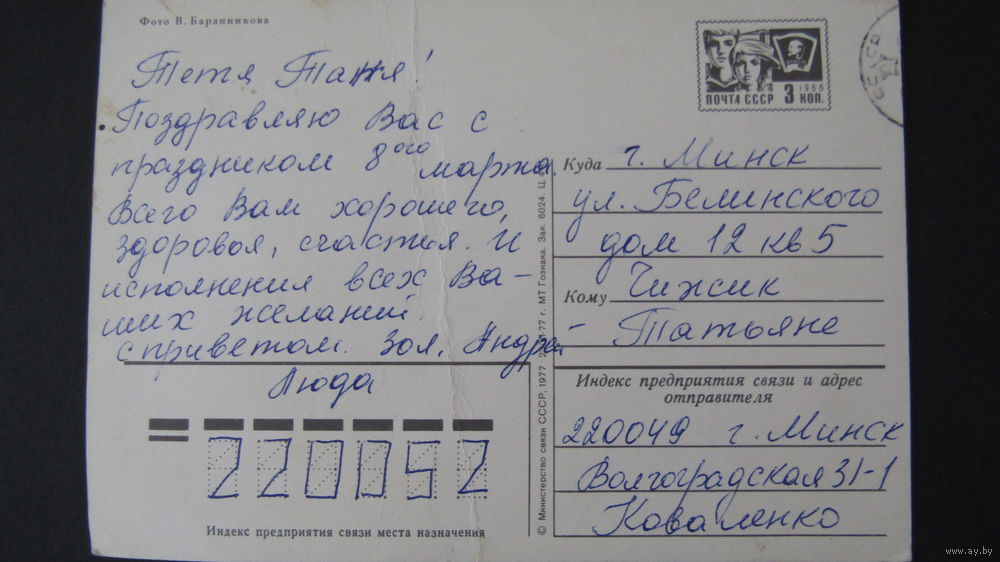 Фото В. Баранникова
Тетя Таня!
Поздравляю Вас с
праздником 8ого марта.
Всего Вам хорошего,
здоровья, счастья. И
исполнения всех Ва-
ших желаний.
с приветом. Зоя, Андрей
Люда
220052
Индекс предприятия связи места назначения
ПОЧТА СССР 3 КОП.
1966
СССР
Куда г. Минск
ул. Белинского
дом 12 кв 5
Кому Чижик
Татьяне
Индекс предприятия связи и адрес
отправителя
220049 г. Минск
Волгоградская 31-1
Коваленко
© Министерство связи СССР, 1977 МТ Гознака. Зак. 6024. Ц.
www.ay.by